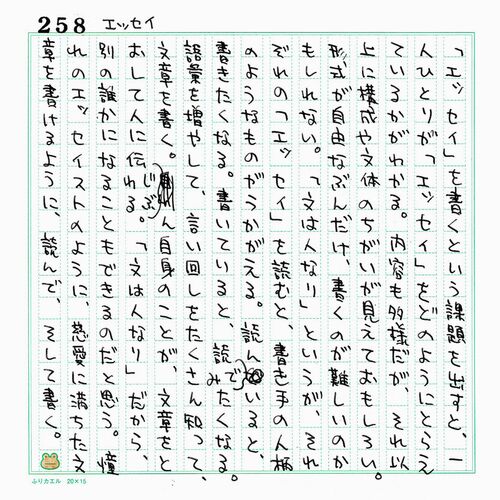 258 エッセイ
「エッセイ」を書くという課題を出すと、一
人ひとりが「エッセイ」をどのようにとらえ
ているかがわかる。内容も多様だが、それ以
上に構成や文体のちがいが見えておもしろい。
形式が自由なぶんだけ、書くのが難しいのか
もしれない。「文は人なり」というが、それ
ぞれの「エッセイ」を読むと、書き手の人柄
のようなものがうかがえる。読んでいると、
書きたくなる。書いていると、読みたくなる。
語彙を増やして、言い回しをたくさん知って、
文章を書く。じぶん自身のことが、文章をと
おして人に伝わる。「文は人なり」だから、
別の誰かになることもできるのだと思う。憧
れのエッセイストのように、慈愛に満ちた文
章を書けるように、読んで、そして書く。
ふりカエル 20×15